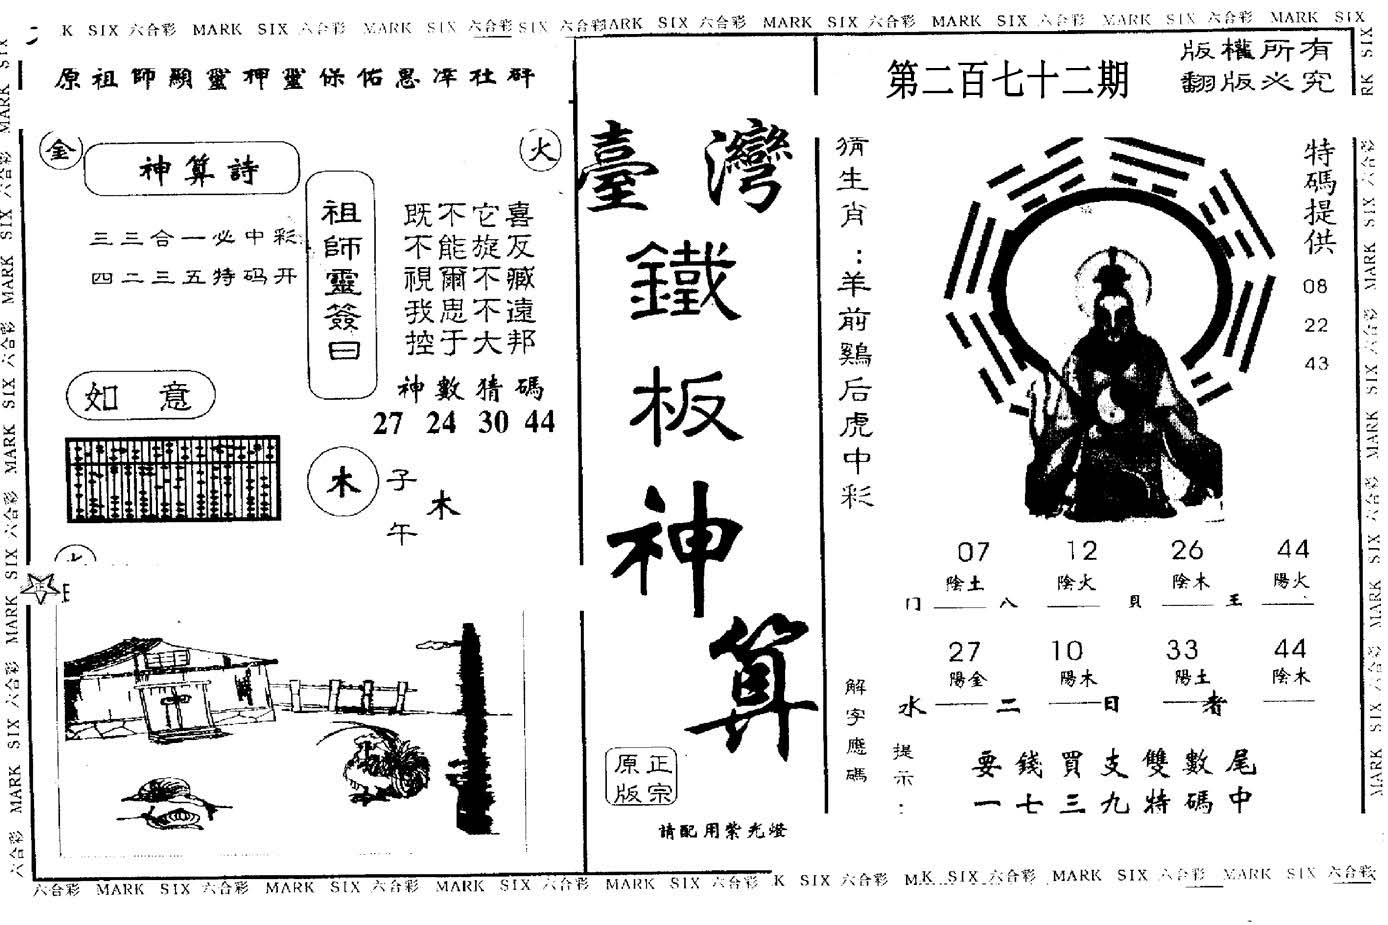 K SIX 六合彩 MARK SIX 六合彩 MARK SIX 六合彩 SIX 六合彩 MARK SIX 六合彩 MARK SIX 六合彩 MARK SIX 六合彩 MARK SIX 六合彩 MARK SIX
原祖師顯靈押靈保佑恩準社群
金
火
神算詩
三三合一必中彩
四二三五特码开
祖師靈簽曰
既不它喜
不能旋反
視爾不臧
我思不遠
控于大邦
神數猜碼
27 24 30 44
如意
木
子
午
木
正
臺灣
鐵
板
神
算
正宗
原版
請配用紫光燈
第二百七十二期
版權所有
翻版必究
猜生肖：羊前鷄后虎中彩
特碼提供
08
22
43
07 12 26 44
陰土 陰火 陰木 陽火
门 八 貝 王
27 10 33 44
陽金 陽木 陽土 陰木
水 二 日 者
解字應碼
提示：
要錢買支雙數尾
一七三九特碼中
六合彩 MARK SIX 六合彩 MARK SIX 六合彩 MARK SIX 六合彩 MARK SIX 六合彩 K SIX 六合彩 M K SIX 六合彩 MARK SIX 六合彩 MARK SIX 六合彩